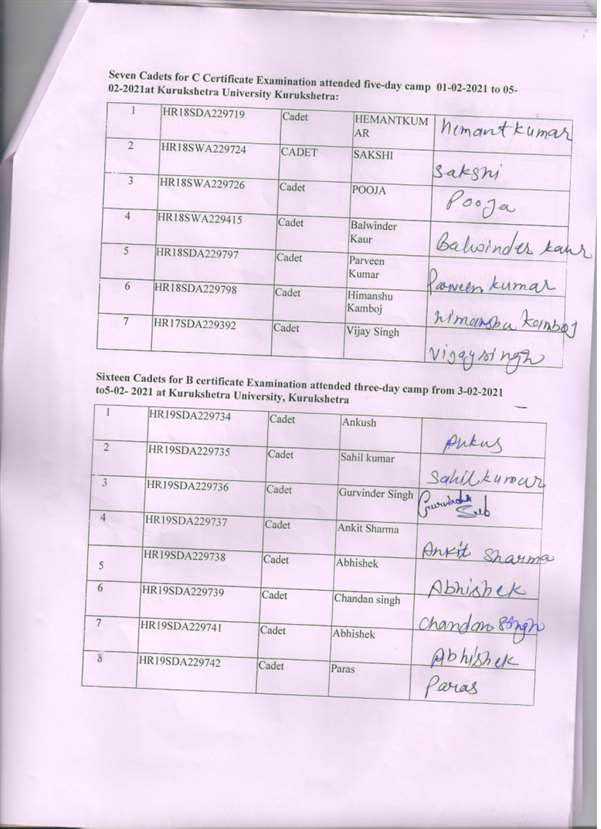 Seven Cadets for C Certificate Examination attended five-day camp 01-02-2021 to 05-
02-2021at Kurukshetra University Kurukshetra:
1 HR18SDA229719 Cadet HEMANTKUM
AR Hemant kumar
2 HR18SWA229724 CADET SAKSHI Sakshi
3 HR18SWA229726 Cadet POOJA Pooja
4 HR18SWA229415 Cadet Balwinder
Kaur Balwinder kaur
5 HR18SDA229797 Cadet Parveen
Kumar Parveen kumar
6 HR18SDA229798 Cadet Himanshu
Kamboj Himanshu Kamboj
7 HR17SDA229392 Cadet Vijay Singh Vijay singh
Sixteen Cadets for B certificate Examination attended three-day camp from 3-02-2021
to5-02- 2021 at Kurukshetra University, Kurukshetra
1 HR19SDA229734 Cadet Ankush Ankus
2 HR19SDA229735 Cadet Sahil kumar Sahil kumar
3 HR19SDA229736 Cadet Gurvinder Singh Gurvinder
4 HR19SDA229737 Cadet Ankit Sharma Ankit Sharma
5 HR19SDA229738 Cadet Abhishek Abhishek
6 HR19SDA229739 Cadet Chandan singh Chandan Singh
7 HR19SDA229741 Cadet Abhishek Abhishek
8 HR19SDA229742 Cadet Paras Paras